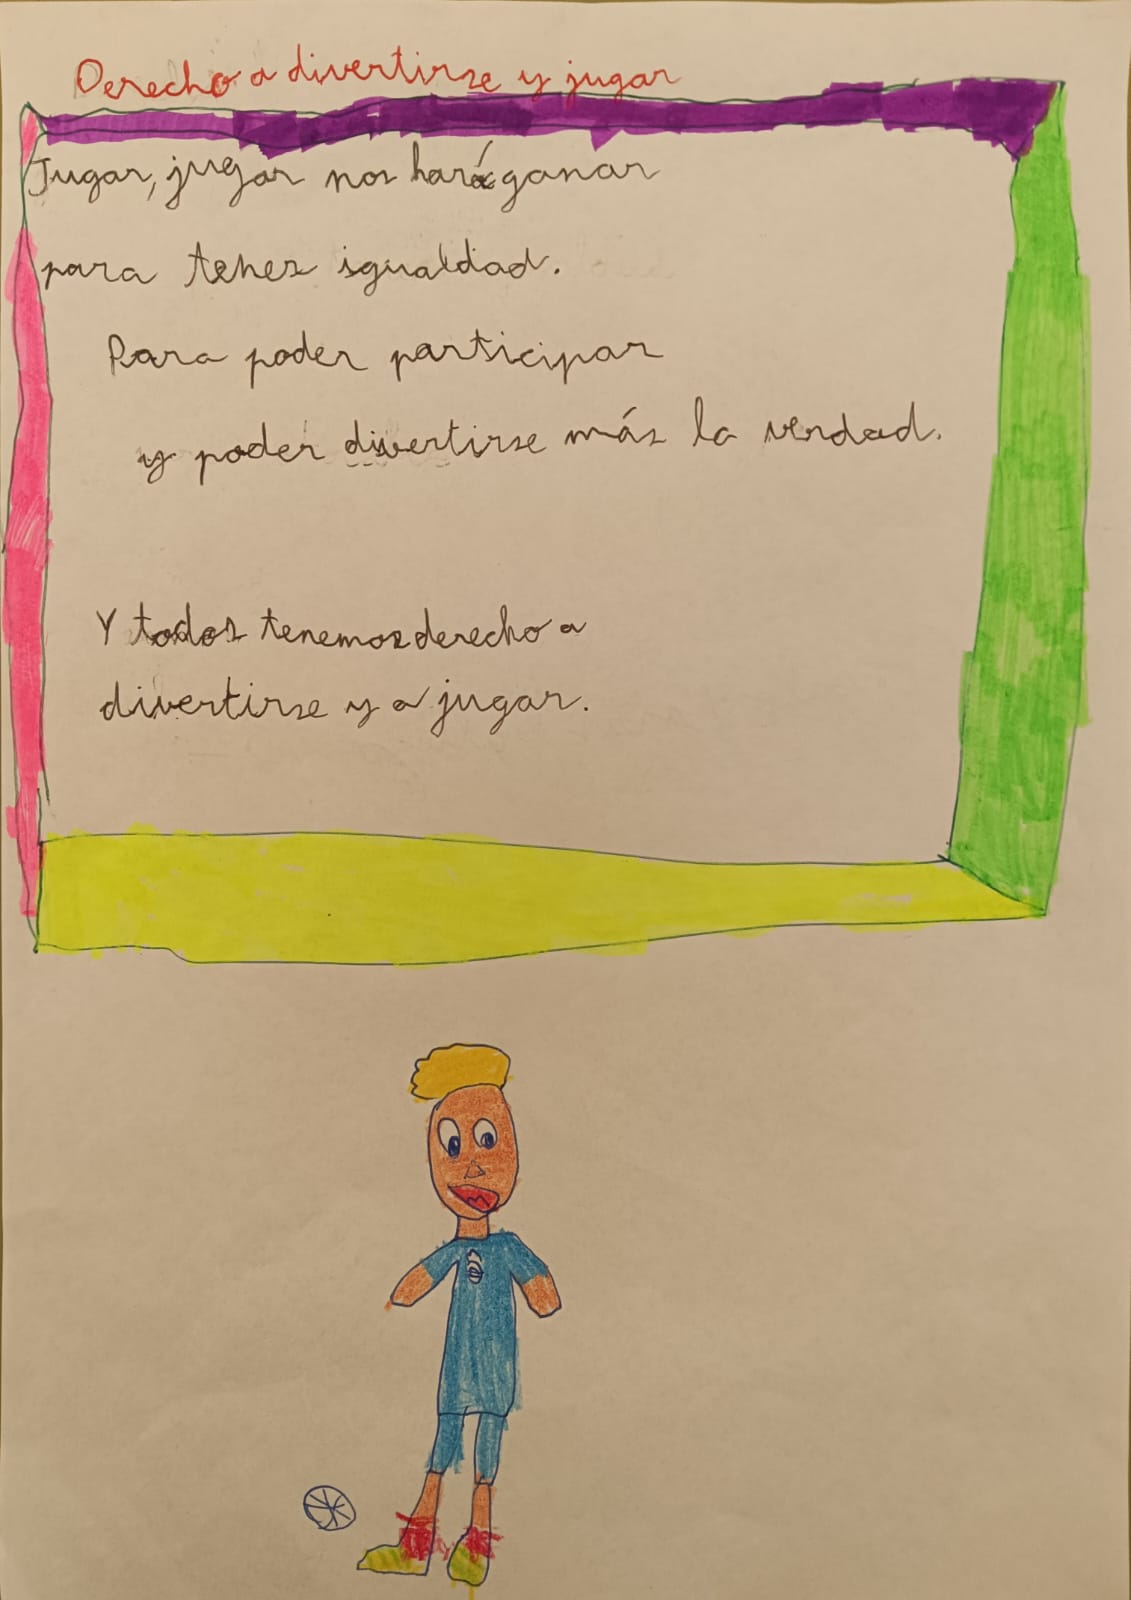 Derecho a divertirse y jugar
Jugar, jugar nos hará ganar
para tener igualdad.
Para poder participar
y poder divertirse más la verdad.
Y todos tenemos derecho a
divertirse y a jugar.